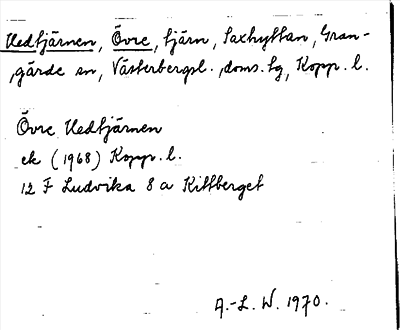 Hedtjärnen, Övre, tjärn, Saxhyttan, Gran-
gärde sn, Västerbergsl., doms. tg, Kopp. l.
Övre Hedtjärnen
ek (1968) Kopp. l.
12 F Ludvika 8 a Kittberget
A.-L. W. 1970.